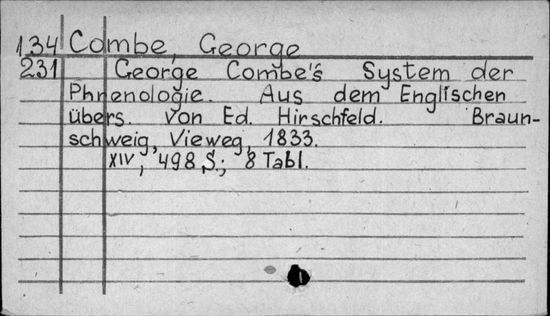 134 Combe, George
231 George Combe's System der
Phrenologie. Aus dem Englischen
übers. von Ed. Hirschfeld. Braun-
schweig, Vieweg, 1833.
XIV, 498 S.; 8 Tabl.